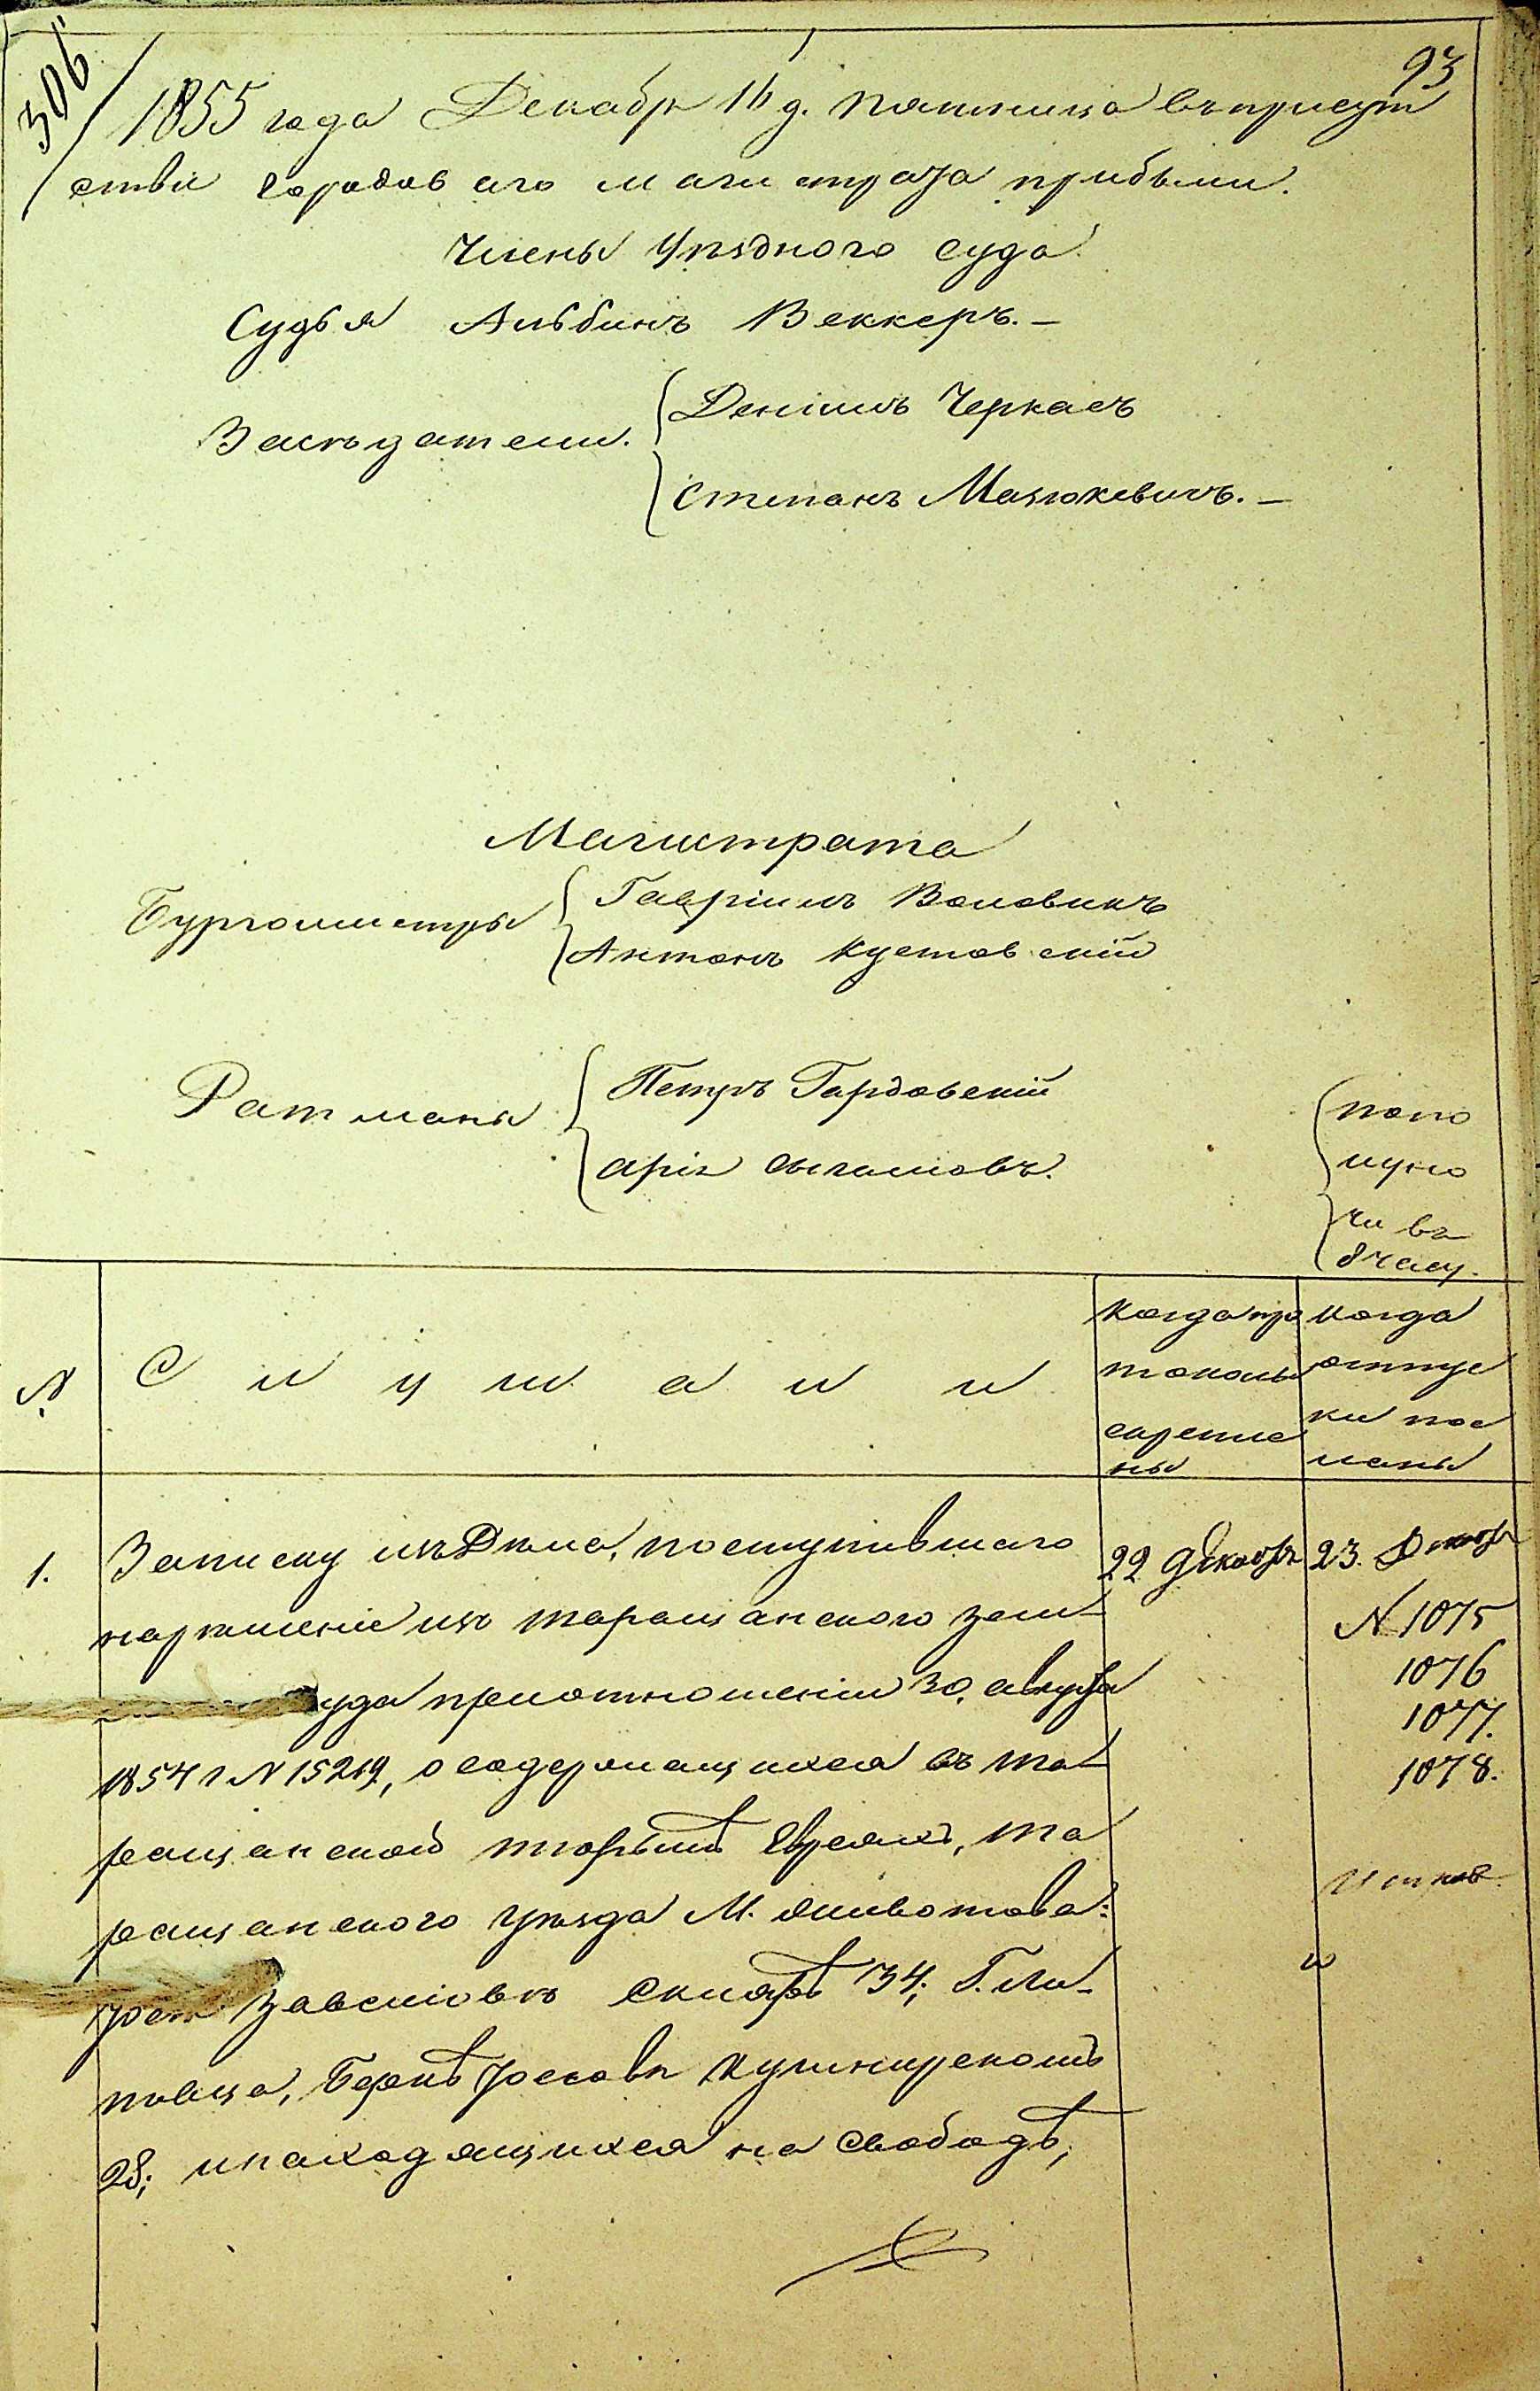 306
93
1855 года Декабря 16 д. пятница въ присут
ствіи городоваго магистрата прибыли.
Члены Уѣзднаго суда
Судья Альбинъ Веккеръ. –
Засѣдатели.
Деніилъ Черкасъ
Степанъ Мацюкевичъ. –
Магистрата
Бургомистры
Гавріилъ Воловикъ
Антонъ Кустовскій
Ратманы
Петръ Гардовскій
Арія
по по
луно
чи въ
8 часу.
№
Слушали
Когда про
токолы
скрепле
ны
Когда
отпус
ки пос
ланы
1.
Записку изъ Дѣла, поступившаго
на рѣшеніе изъ таращанского зем-
уда при отношеніи 30. августа
1854 г № 15219, о содержащихся въ та-
ращанской тюрьмѣ Евреяхъ, та
ращанского уѣзда М. Животова:
Завелiовѣ Склярѣ 34; Г. Ли-
повца, Беркѣ Іосіовѣ Кушнирскомъ
28; и находящихся на свободѣ,
22 Декабря
23. Декабр
№ 1075
1076
1077.
1078.